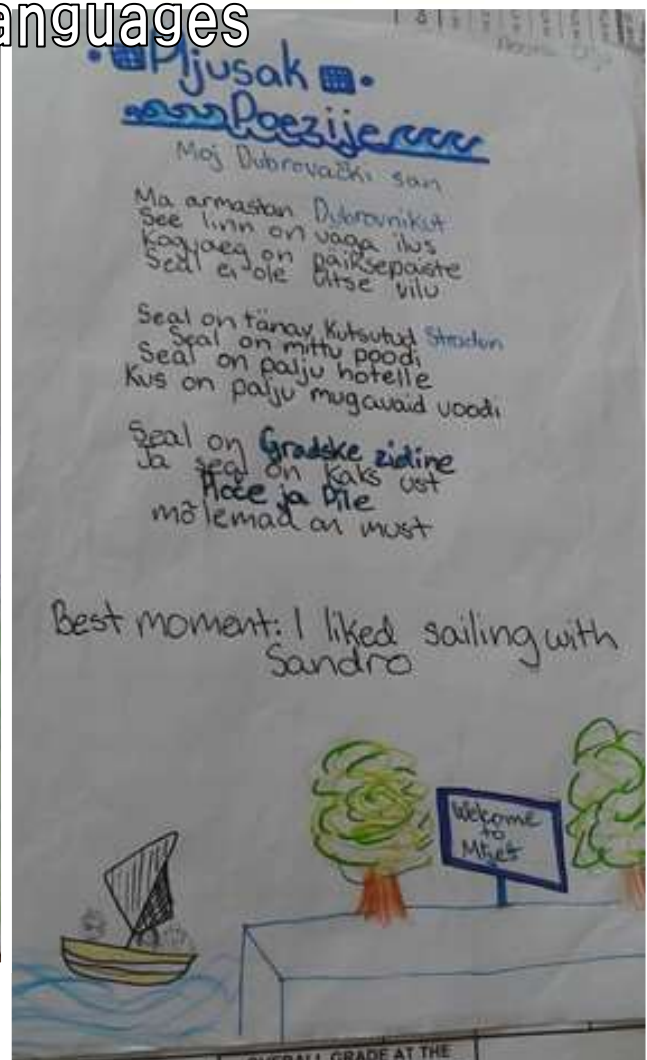 anguages
Pljusak
Poezije
Moj Dubrovački san
Ma armastan Dubrovnikut
See linn on väga ilus
Kogu aeg on päiksepaiste
Seal ei ole üldse vilu
Seal on tänav kutsutud Stradun
Seal on mittu poodi
Seal on palju hotelle
Kus on palju mugavaid voodi
Seal on Gradske zidine
Ja seal on kaks ust
Ploče ja Pile
mõlemad on must
Best moment: I liked sailing with
Sandro
Welcome
to
Mljet
OVERALL GRADE AT THE